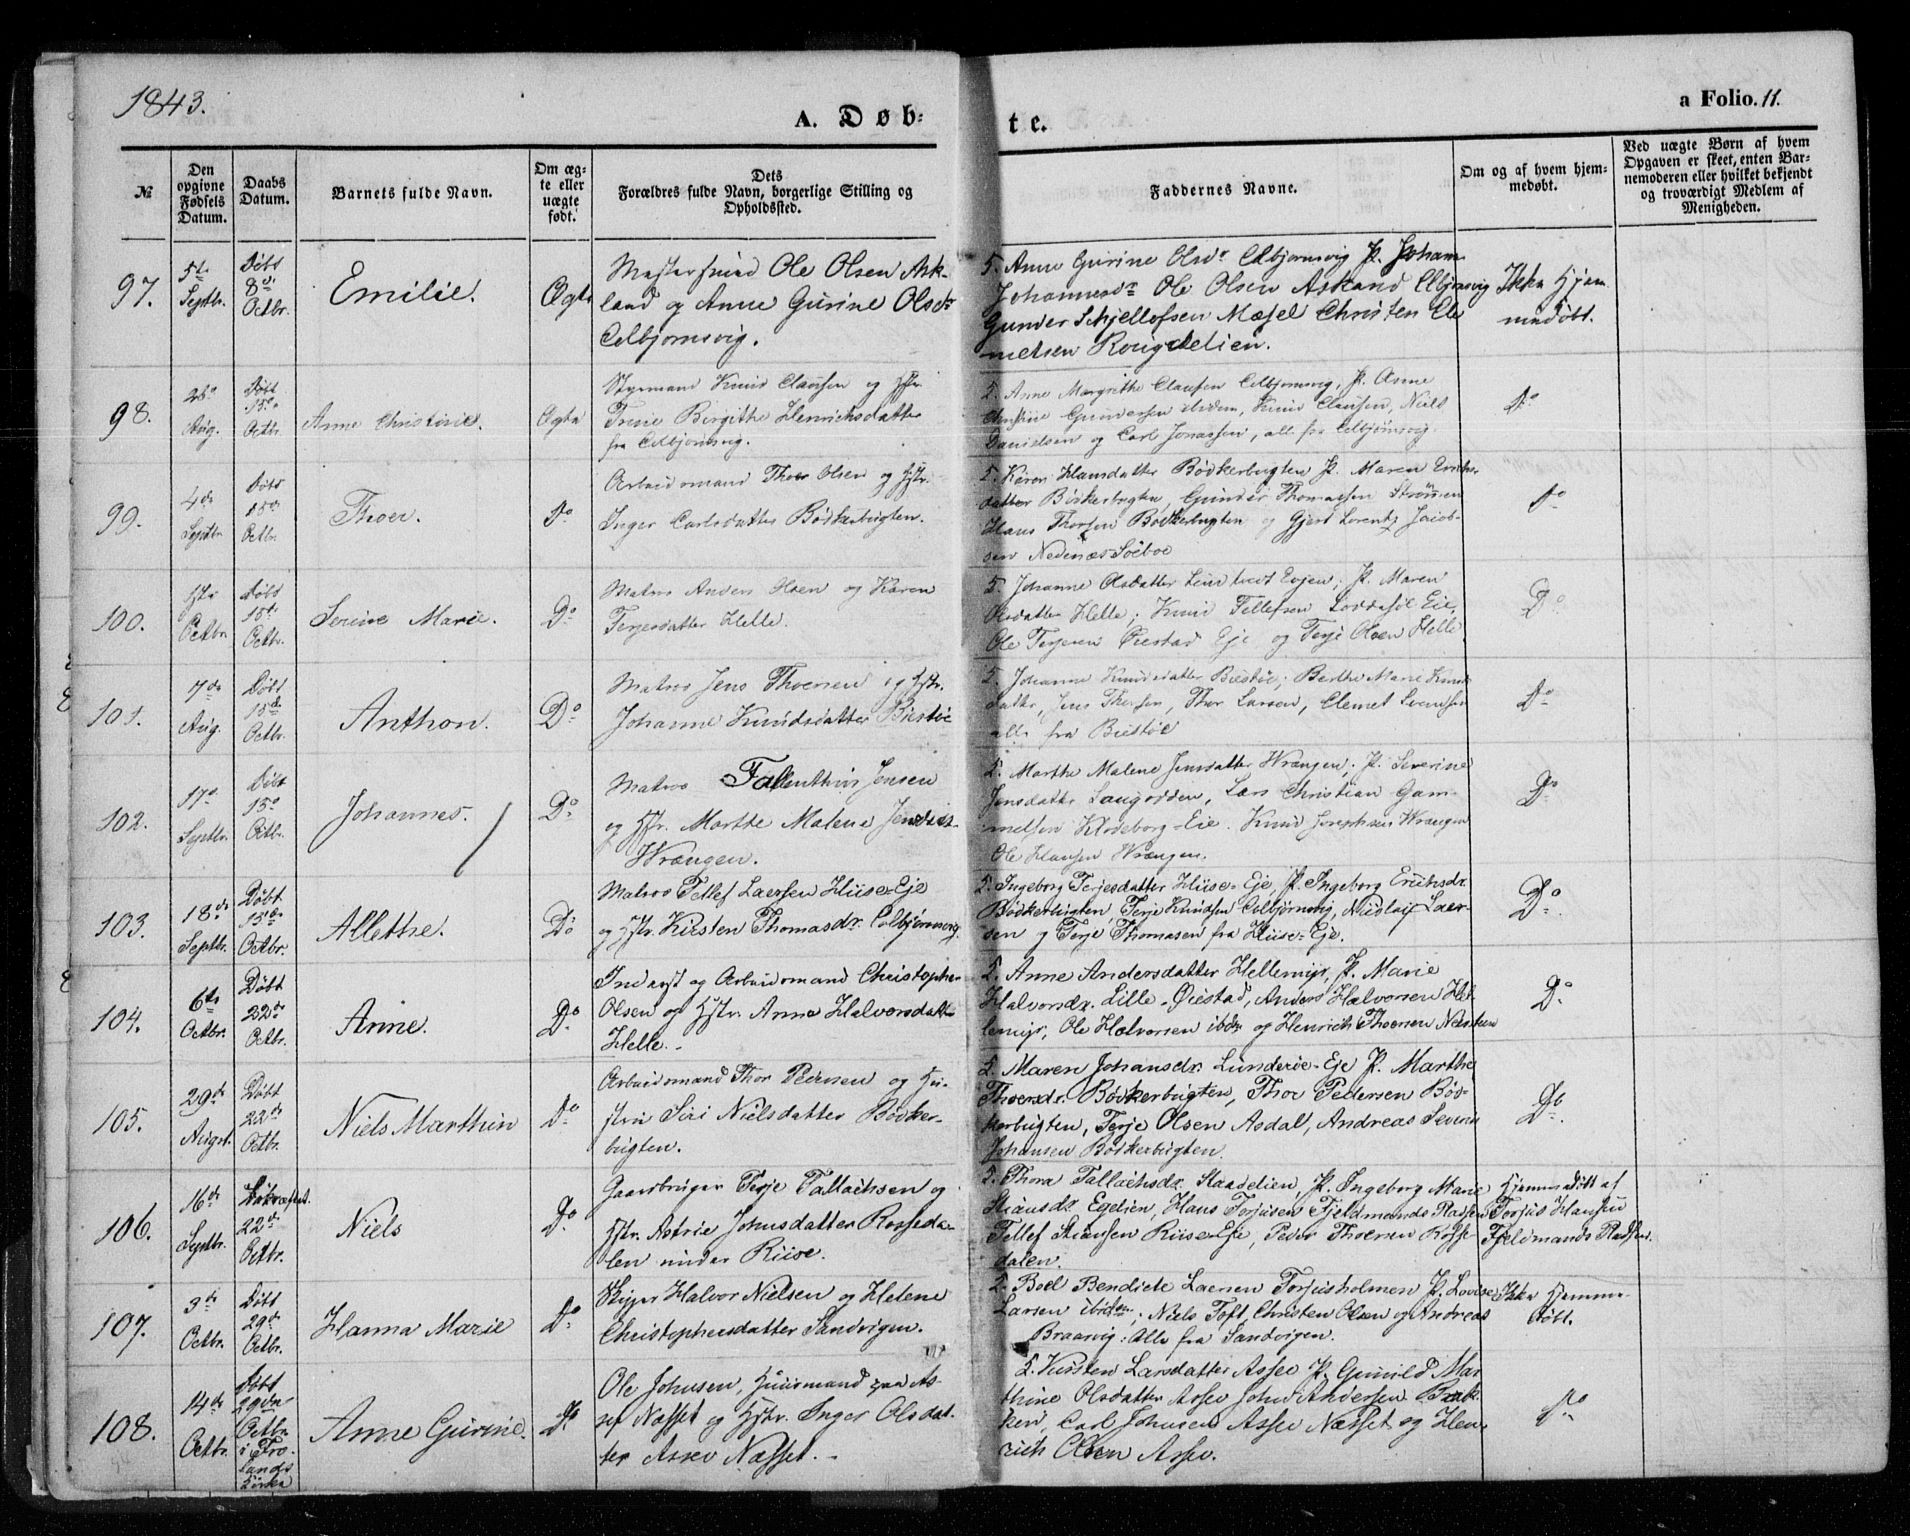 1843.
A. Døb=
te.
a Folio. 11.
№
Den opgivne Fødsels Datum.
Daabs Datum.
Barnets fulde Navn.
Om ægte eller uægte født.
Dets Forældres fulde Navn, borgerlige Stilling og Opholdssted.
Faddernes Navne.
Om og af hvem hjemmedøbt.
Ved uægte Børn af hvem Opgaven er skeet, enten Barnemoderen eller hvilket bekjendt og troværdigt Medlem af Menigheden.
97.
5te Septbr.
Døbt 8de Octbr.
Emilie.
Ægte
Ole Olsen Ask-
land og Anne Gurine Olsdr
Colbjørnsvig.
5. Anne Gurine Olsdr Colbjørnsvig P. Johanne
Johannesdr Ole Olsen Askland Colbjørnsvig
Gunder Schjellofsen Mæsel Christen Cle
metsen Rougdelien.
Ikke Hjem
medøbt.
98.
Aug.
Døbt 15de Octbr.
Anne Christine.
Ægte
Styrmand Knud Clausen og Hstr.
Trine Birgithe Henrichsdatter
fra Colbjørnsvig.
5. Anne Margrethe Clausen Colbjørnsvig, P. Anne
Christine Gundersen ibidem, Knud Clausen, Niels
Danielsen og Carl Jonassen, alle fra Colbjørnsvig.
Do
99.
4de Septbr.
Døbt 15de Octbr.
Thoer.
Do
Arbeidsmand Thoer Olsen og Hstr.
Inger Carlsdatter Bødkerbugten.
5. Karen Hansdatter Bødkerbugten P. Maren Erichs-
datter Bødkerbugten, Gunder Thomassen Strømmen
Hans Thorsen Bødkerbugten og Gjert Lorentz Jacob-
sen Nedenæs Søeboe
Do
100.
Octbr.
Døbt 15de Octbr.
Serine Marie.
Do
Matros Anders Olsen og Karen
Terjesdatter Helle.
5. Johanne Olsdatter Evjen; P. Maren
Olsdatter Helle; Knud Tellefsen Loddesøl Eie,
Ole Terjesen Øiestad Eje og Terje Olsen Helle
Do
101.
7de Aug.
Døbt 15de Octbr.
Anthon.
Do
Matros Jens Thoersen og Hstr.
Johanne Knudsdatter Biestøe
5. Johanne Knudsdatter Biestøe; Berthe Marie Knuds
datter, Jens Thorsen, Thor Larsen, Clemet Svendsen
alle fra Biestøe
Do
102.
17de Septbr.
Døbt 15de Octbr.
Johannes.
Do
Matros Fallenthin Jensen
og Hstr. Marthe Malene Jensdtr.
Wrængen.
5. Marthe Malene Jensdatter Wrængen; P. Severine
Jensdatter Langodden, Lars Christian Gam-
melsen Klodeborg-Eie. Knud Josephsen Wrængen
Ole Hansen Wrængen.
Do
103.
18de Septbr.
Døbt 15de Octbr.
Allethe.
Do
Matros Tellef Laersen Huse-Eje
og Hstr. Kirsten Thomasdr. Colbjørnsvig.
5. Ingeborg Terjesdatter Huse-Eje, P. Ingeborg Erichsdr.
Bødkerbugten, Terje Knudsen Colbjørnsvig, Nicolai Laer-
sen og Terje Thomasen fra Huse-Eje.
Do
104.
6te Octbr.
Døbt 22de Octbr.
Anne.
Do
Inderst og Arbeidsmand Christopher
Olsen og Hstr. Anne Halvorsdatter
Helle.
5. Anne Andersdatter Hellemyr, P. Marie
Halvorsdr. Lille-Øiestad, Anders Halvorsen Hel-
lemyr, Ole Halvorsen ibdm og Henrich Thorsen
Do
105.
29de August.
Døbt 22de Octbr.
Niels Marthin
Do
Arbeidsmand Thor Pedersen og Hu-
stru Siri Nielsdatter Bødker-
bugten.
5. Maren Johansdr. Lunderøe-Eje P. Marthe
Thorsdr. Bødkerbugten, Thor Pedersen Bød-
kerbugten, Terje Olsen Asdal, Andreas Severin
Johansen Bødkerbugten.
Do
106.
16de Septbr.
22de Octbr.
Niels
Do
Gaardbruger Terje Tallachsen og
Hstr. Astrie Johnsdatter Rosseda-
len under Riise.
5. Thora Tallachsdr. Staadelien, P. Ingeborg Marie
Stiansdr Egelien, Hans Torjusen Fjeldmands Pladsen
Tellef Stiansen Riise-Eje, Peder Thorsen Rosse-
dalen.
Hjemmedøbt af
Torjus Hansen
Fjeldmands Pladsen.
107.
3de Octbr.
Døbt 29de Octbr.
Hanna Marie
Do
Skipper Halvor Nielsen og Helene
Christophersdatter Sandvigen.
5. Boel Bendicte Larsen Torjusholmen P. Lovise
Larsen ibidem; Niels Toft, Christen Olsen og Andreas
Braarvig: Alle fra Sandvigen.
Ikke Hjemme-
døbt.
108.
14de Octbr.
Døbt 29den Octbr. i Tro-
mø
lands
Kirke
Anne Gurine.
Do
Ole Johnsen, Huusmand paa As-
sev Næsset og Hstr. Inger Olsdat-
ter Assev Næsset.
5. Kirsten Larsdatter Assev P. Gunild Mar
thine Olsdatter Assev John Andersen Bræk-
ken, Carl Johnsen Assev Næsset og Hen-
rich Olsen Assev.
Do